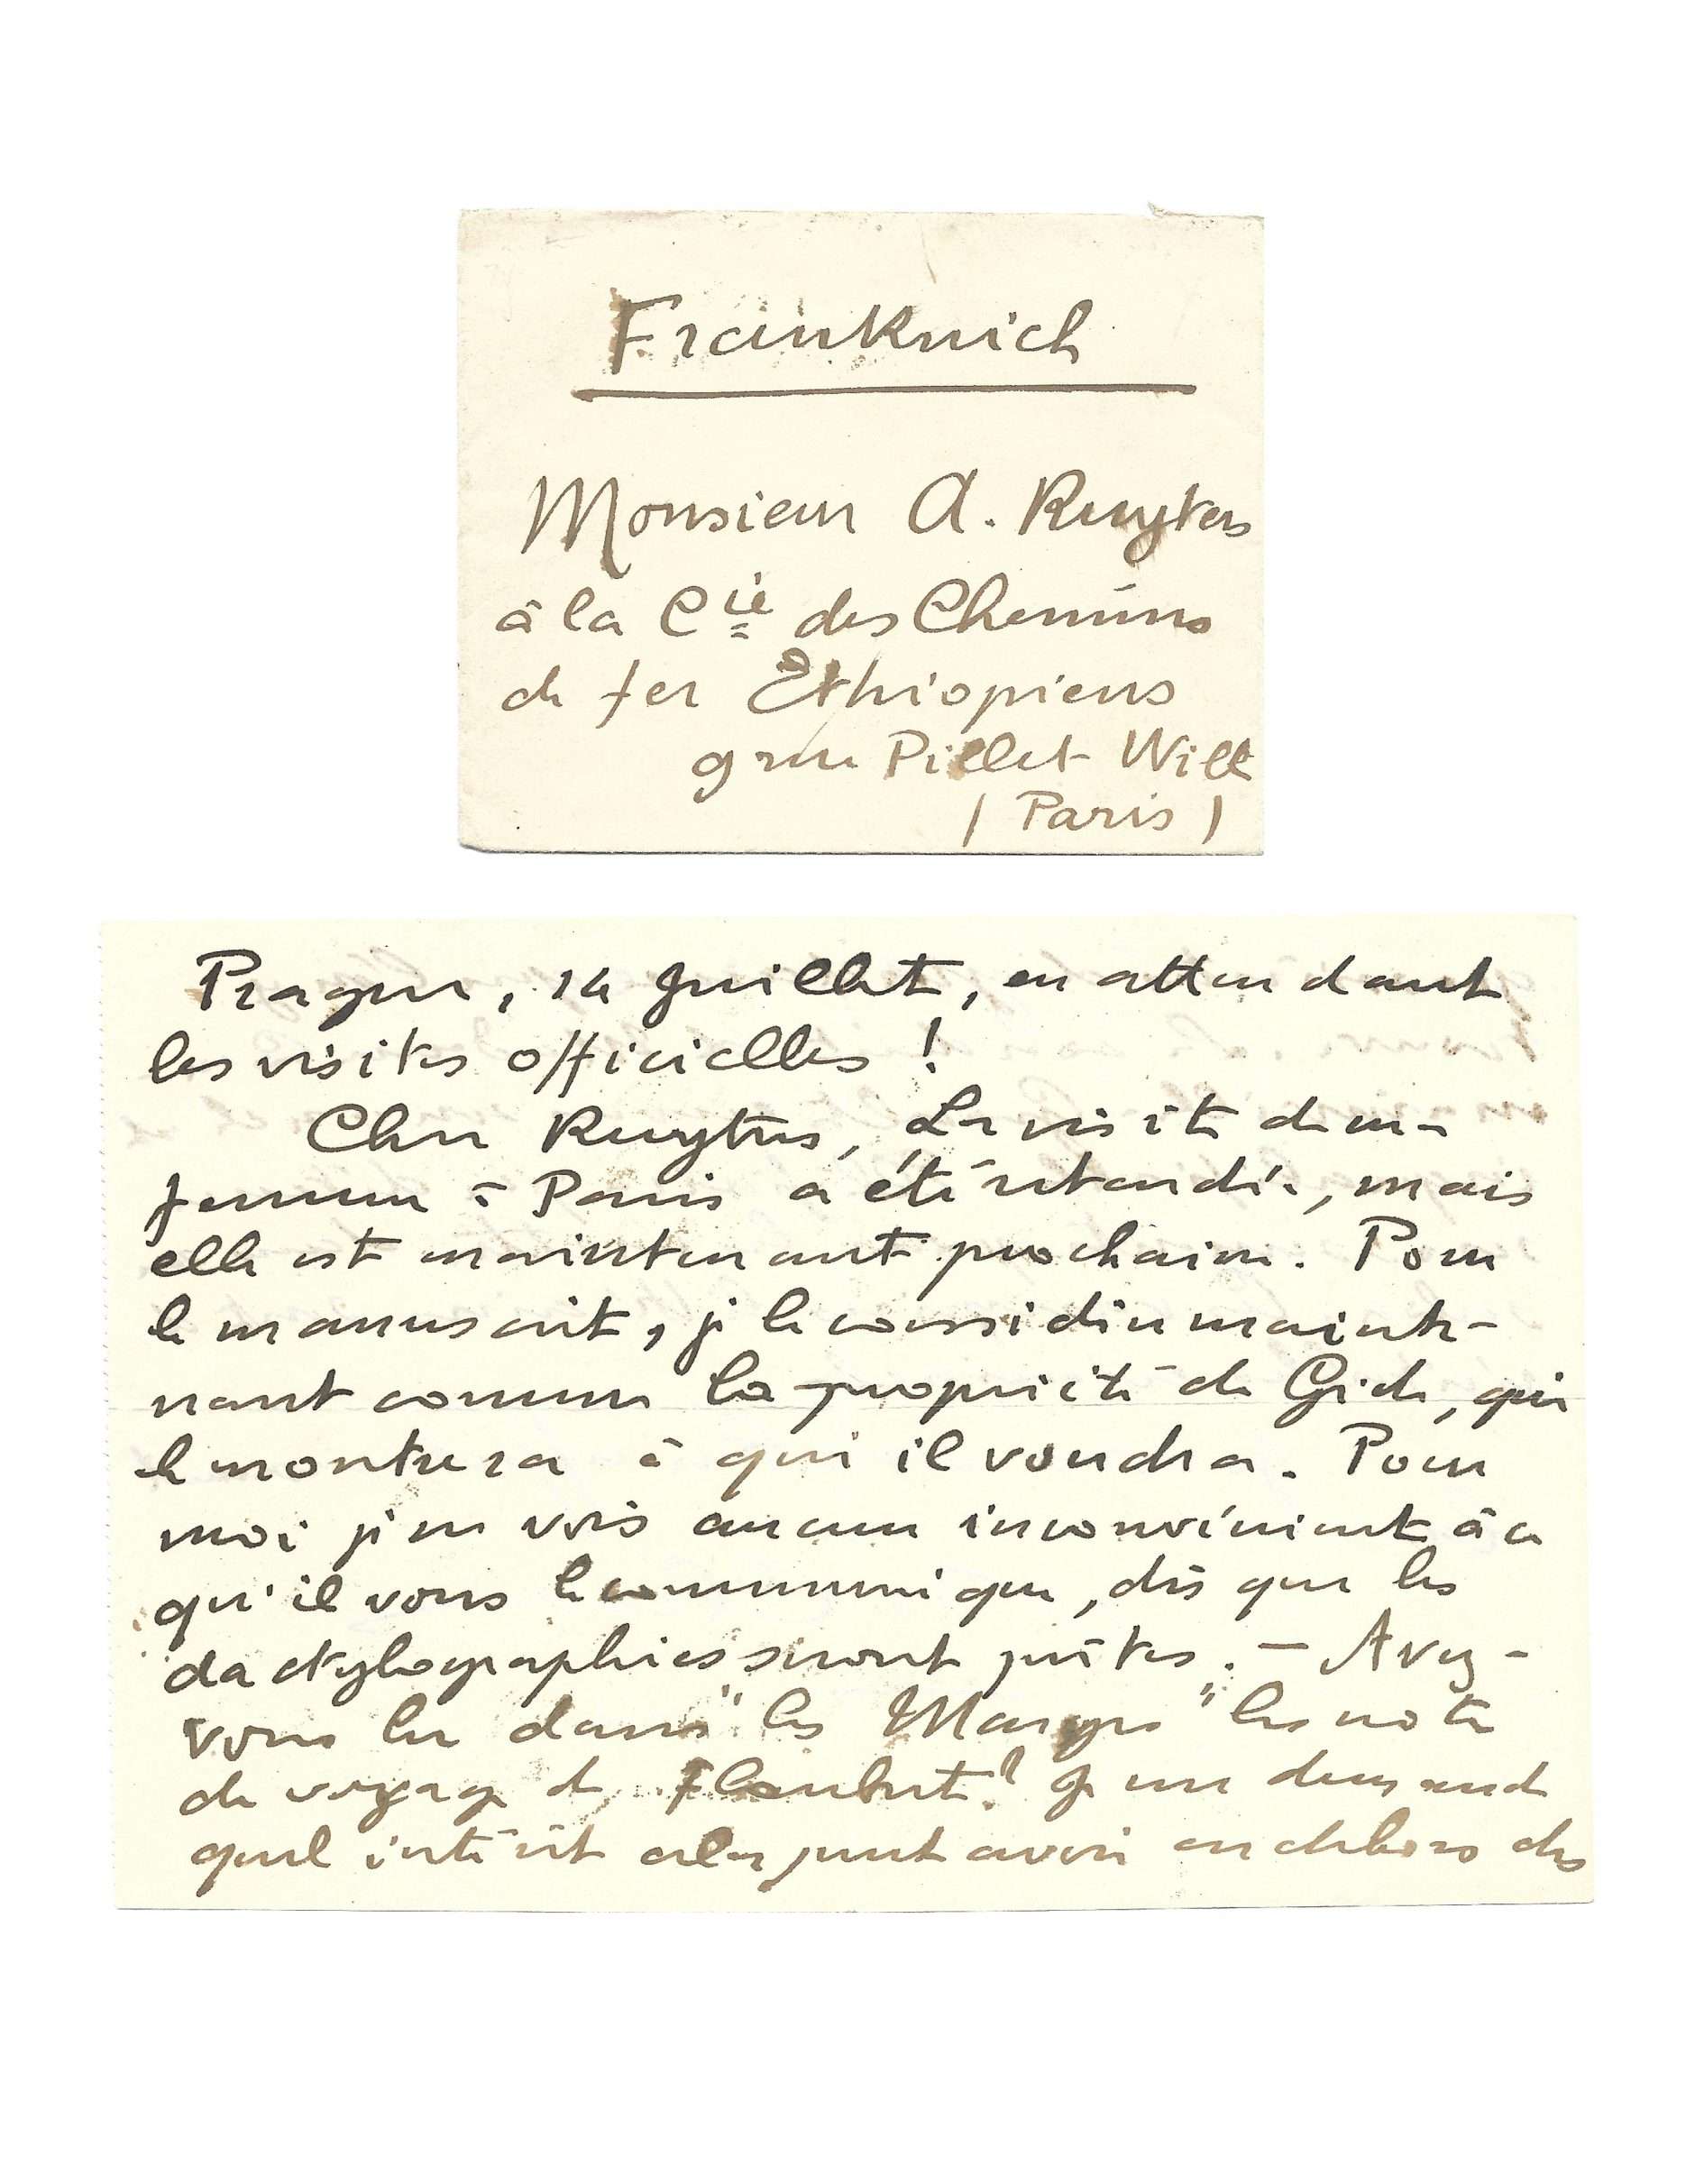 Frankreich
Monsieur A. Ruyters
à la Cie des Chemins
de fer Ethiopiens
9 rue Pillet Will
(Paris)
Prague, 14 Juillet, en attendant
les visites officielles !
Cher Ruyters, La visite de ma
femme à Paris a été retardée, mais
elle est maintenant prochaine. Pour
le manuscrit, je le considère mainte-
nant comme la propriété de Gide, qui
le montrera à qui il voudra. Pour
moi je ne vois aucun inconvénient à ce
qu'il vous le communique, dès que les
dactylographies seront prêtes. — Avez-
vous lu dans "les Marges" les note
de voyage de Flaubert ? Je me demande
quel intérêt cela peut avoir en dehors des